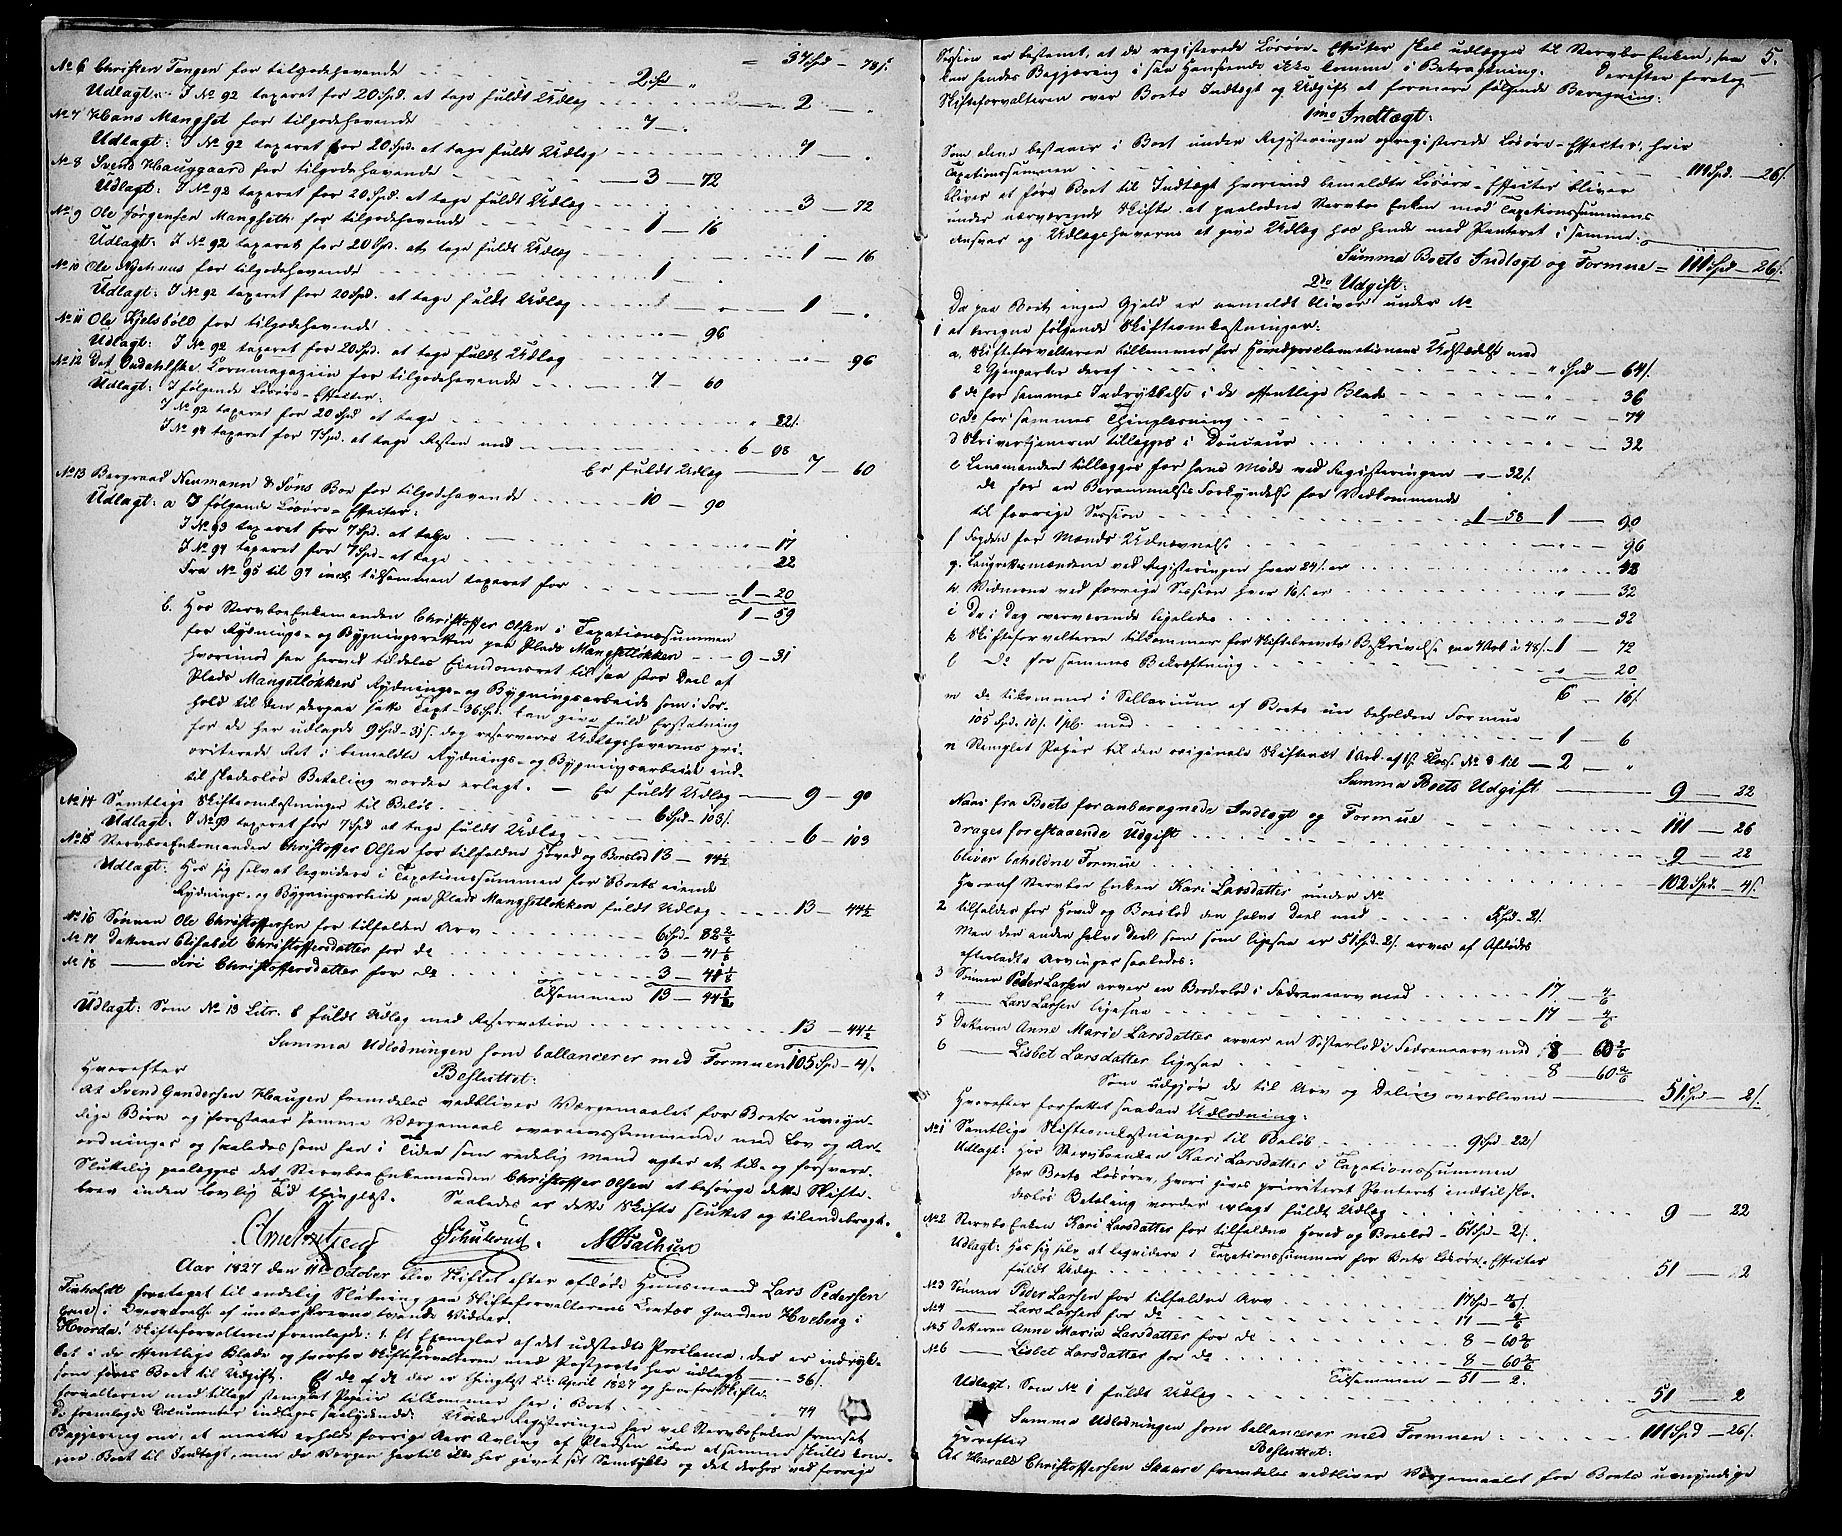 = 37 Spd - 78 s.
No 6 Christen Tangen for tilgodehavende 2 Spd "
Udlagt: I No 92 taxeret for 20 Spd. at tage fuldt Udlæg 2 - "
No 7 Hans Mangset for tilgodehavende 7 - "
Udlagt: I No 92 taxeret for 20 Spd. at tage fuldt Udlæg 7 - "
No 8 Svend Hauggaard for tilgodehavende 3 - 72
Udlagt: I No 92 taxeret for 20 Spd. at tage fuldt Udlæg 3 - 72
No 9 Ole Jørgensen Mangseth for tilgodehavende 1 - 16
Udlagt: I No 92 taxeret for 20 Spd. at tage fuldt Udlæg 1 - 16
No 10 Ole Nyehuus for tilgodehavende 1 -
Udlagt: I No 92 taxeret for 20 Spd. at tage fuldt Udlæg 1 - "
No 11 Ole Kjelsböll for tilgodehavende " - 96
Udlagt: I No 92 taxeret for 20 Spd. at tage fuldt Udlæg " - 96
No 12 Det Oudalske Cornmagaziin for tilgodehavende 7 - 60
Udlagt: I følgende Løsøre-Effecter:
I No 92 taxeret for 20 Spd at tage " 82 s.
I No 94 taxeret for 7 Spd. at tage Resten med 6 - 98
Er fuldt Udlæg 7 - 60
No 13 Bergraad Neumann & Søns Boe for tilgodehavende 10 - 90
Udlagt: a I følgende Løsøre-Effecter:
I No 93 taxeret for 7 Spd. at tage " - 17
I No 94 taxeret for 7 Spd. at tage " 22
Fra No 95 til 97 incl. tilsammen taxeret for 1 - 20
1 - 59
b. Hos Stervboe Enkemanden Christoffer Olsen i Taxationssummen
for Rydnings- og Bygningsretten paa Plads Mangsetløkken 9 - 31
hvorimod han herved tildeles Eiendomsret til saa stor Deel af
Plads Mangsetløkkens Rydnings- og Bygningsarbeide som i For-
hold til den derpaa satte Taxt - 36 Spd. kan give fuld Erstatning
for de her udlagde 9 Spd - 31 s. dog reserveres Udlægshaverens pri-
oriterede Ret i bemeldte Rydnings- og Bygningsarbeide ind-
til skadesløs Betaling vorder erlagt. - Er fuldt Udlæg 9 - 90
No 14 Samtlige Skifteomkostninger til Beløb 6 Spd - 103 s.
Udlagt: I No 93 taxeret for 7 Spd at tage fuldt Udlæg 6 - 103
No 15 Stervboe Enkemanden Christoffer Olsen for tilfalden Hoved og Boeslod 13 - 44½
Udlagt: Hos sig selv at liqvidere i Taxationssummen for Boets eiende
Rydnings- og Bygningsarbeide paa Plads Mangsetløkken fuldt Udlæg 13 - 44½
No 16 Sønnen Ole Christoffersen for tilfalden Arv 6 Spd - 82 2/8
No 17 Datteren Elisabet Christoffersdatter for do 3 - 41 1/8
No 18 — Siri Christoffersdatter for do 3 - 41 1/8
Tilsammen 13 - 44½
Udlagt: Som No 13 Litr. b fuldt Udlæg med Reservation 13 - 44½
Summa Udlodningen som ballancerer med Formuen 105 Spd - 4 s.
Hvorefter
Besluttet:
At Svend Gundersen Haugen fremdeles vedbliver Værgemaalet for Boets umyn-
dige Børn og forestaaer samme Værgemaal overeensstemmende med Lov og An-
ordninger og saaledes som han i Tiden som redelig Mand agter at til- og forsvare.
Sluttelig paalægges det Stervboe Enkemanden Christoffer Olsen at besørge dette Skifte-
brev inden lovlig Tid thinglæst. Saaledes er dette Skifte sluttet og tilendebragt.
Aar 1827 den 11te October blev Skiftet efter afdøde Huusmand Lars Pedersen
foretaget til endelig Slutning paa Skifteforvalterens Contor Gaarden Hveberg i
i Overværelse af underskrevne tvende Vidner.
Hvorda! Skifteforvalteren fremlagde: 1. Et Exemplar af det udstædte Proclama, der er indryk-
ket i de offentlige Blade og hvorfor Skifteforvalteren med Postporto har udlagt 36 s.
som føres Boet til Udgift. Et do af do der er thinglæst April 1827 og hvorfor Skifte-
forvalteren med tillagt stemplet Papiir tilkommer her i Boet 74
De fremlagde Documenter indtages saalydende: Under Registeringen har vel Stervboe Enken fremsat
Begjæring om, at maatte erholde forrige Aars Avling af Pladsen uden at samme skulle kom-
me Boet til Indtægt, men da Værgen hertil ikke har givet sit Samtykke og det derhos ved forrige
5.
Session er bestemt, at de registerede Løsøre-Effecter skal udlægges til Stervboe Enken, saa
kan hendes Begjæring i saa Henseende ikke komme i Betragtning. Derefter foretog
Skifteforvalteren over Boets Indtægt og Udgift at formere følgende Beregning:
1mo Indtægt:
Som alene bestaaer i Boet under Registeringen opregisterede Løsøre-Effecter, hvis
Taxationssummen 111 Spd. - 26 s.
bliver at føre Boet til Indtægt hvorimod bemeldte Løsøre-Effecter bliver
under nærværende Skifte at paalodne Stervboe Enken med Taxationssummens
Ansvar og Udlægshaverne at give Udlæg hos hende med Panteret i samme.
Summa Boets Indtægt og Formue = 111 Spd - 26 s.
2do Udgift:
Da paa Boets ingen Gjeld er anmeldt bliver under No
1 at beregne følgende Skifteomkostninger:
a. Skifteforvalteren tilkommer for Hovedproclamationens Udstædelse med
2 Gjenparter deraf " Spd - 64 s.
b do for sammes Indrykkelse i de offentlige Blade " 36
c do for sammes Thinglæsning " - 74
d Skrivertjeneren tillægges i Douceur " - 32
e Lensmanden tillægges for hans Møde ved Registeringen " - 32 s.
do for en Berammelses Forkyndelse for Vedkommende
til forrige Session 1 - 58 1 - 90
f Fogden for Mænds Udnævnelse " - 96
g. Laugrettesmændene ved Registeringen hver 24 s. er " 48
h. Vidnerne ved forrige Session hver 16 s. er " - 32
i De i Dag overværende ligeledes " - 32
k Skifteforvalteren tilkommer for Skiftebrevets Beskrivelse paa 4 Ark à 48 s. 1 - 72
l do for sammes Bekræftning " - 20
6 - 16 s.
m do tilkommer i Sallarium af Boets nu beholden Formue
105 Spd. 10 s. 1 pCt. med 1 - 6
n Stemplet Papir til den originale Skifteact 1 Ark af 1ste Classe No 9 til 2 - "
Summa Boets Udgift 9 - 22
Naar fra Boets foranberegnede Indtægt og Formue 111 - 26
drages forestaaende Udgift 9 - 22
bliver beholdne Formue 102 Spd. - 4 s.
Hvoraf Stervboe Enken Kari Larsdatter under No
2 tilfalder for Hoved og Boeslod den halve Deel med 51 Spd - 2 s.
Men den anden halve Deel som ligesaa er 51 Spd. 2 s. arves af Afdødes
efterladte Arvinger saaledes:
3 Sønnen Peder Larsen arver en Broderlod i Fædrenearv med 17 - 4/6
4 — Lars Larsen ligesaa 17 - 4/6
5 Datteren Anne Marie Larsdatter arver en Søsterlod i Fædrenearv med 8 - 60 2/6
6 — Lisbet Larsdatter ligesaa 8 - 60 2/6
Som udgjør de til Arv og Deling overblevne 51 Spd - 2 s.
Hvorefter forfattet saadan Udlodning:
No 1 Samtlige Skifteomkostninger til Beløb 9 Spd 22 s
Udlagt: Hos Stervboe Enken Kari Larsdatter i Taxationssummen
for Boets Løsøre, hvori gives prioriteret Panteret indtil ska-
desløs Betaling vorder erlagt fuldt Udlæg 9 - 22
No 2 Stervboe Enken Kari Larsdatter for tilfalden Hoved og Boeslod 51 Spd - 2 s.
Udlagt: Hos sig selv at liqvidere i Taxationssummen for Boets Løsøre-Effecter
fuldt Udlæg 51 - 2
No 3 Sønnen Peder Larsen for tilfalden Arv 17 Spd - 4/6 s.
No 4 — Lars Larsen for do 17 - 4/6
No 5 Datteren Anne Maria Larsdatter for do 8 - 60 2/6
No 6 — Lisbet Larsdatter for do 8 - 60 2/6
Tilsammen 51 - 2.
Udlagt: Som No 1 fuldt Udlæg 51 - 2
Summa Udlodningen som ballancerer med Formuen 111 Spd - 26 s.
Hvorefter
Besluttet:
At Harald Christoffersen Skaare fremdeles vedbliver Værgemaalet for Boets umyndige